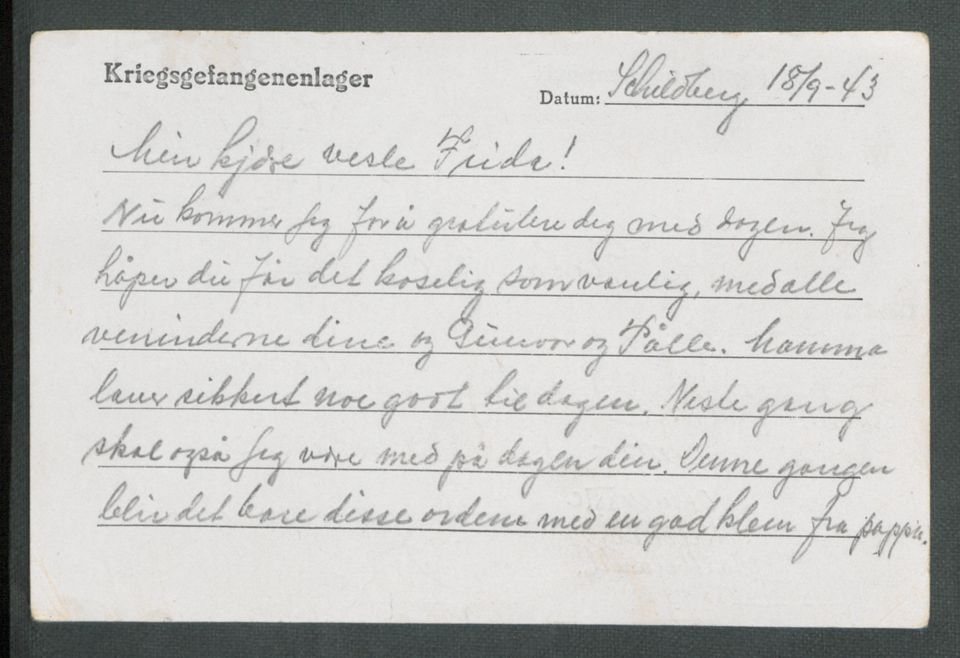 Kriegsgefangenenlager
Datum: Schildberg 18/9-43
Min kjære vesle Frida!
Nu kommer jeg for å gratulere dig med dagen. Jeg
håper du får det koselig som vanlig, med alle
veninderne dine og Gunvor og Pålle. Mamma
laver sikkert noe godt til dagen. Neste gang
skal også jeg være med på dagen din. Denne gangen
blir det bare disse ordene med en god klem fra pappa.